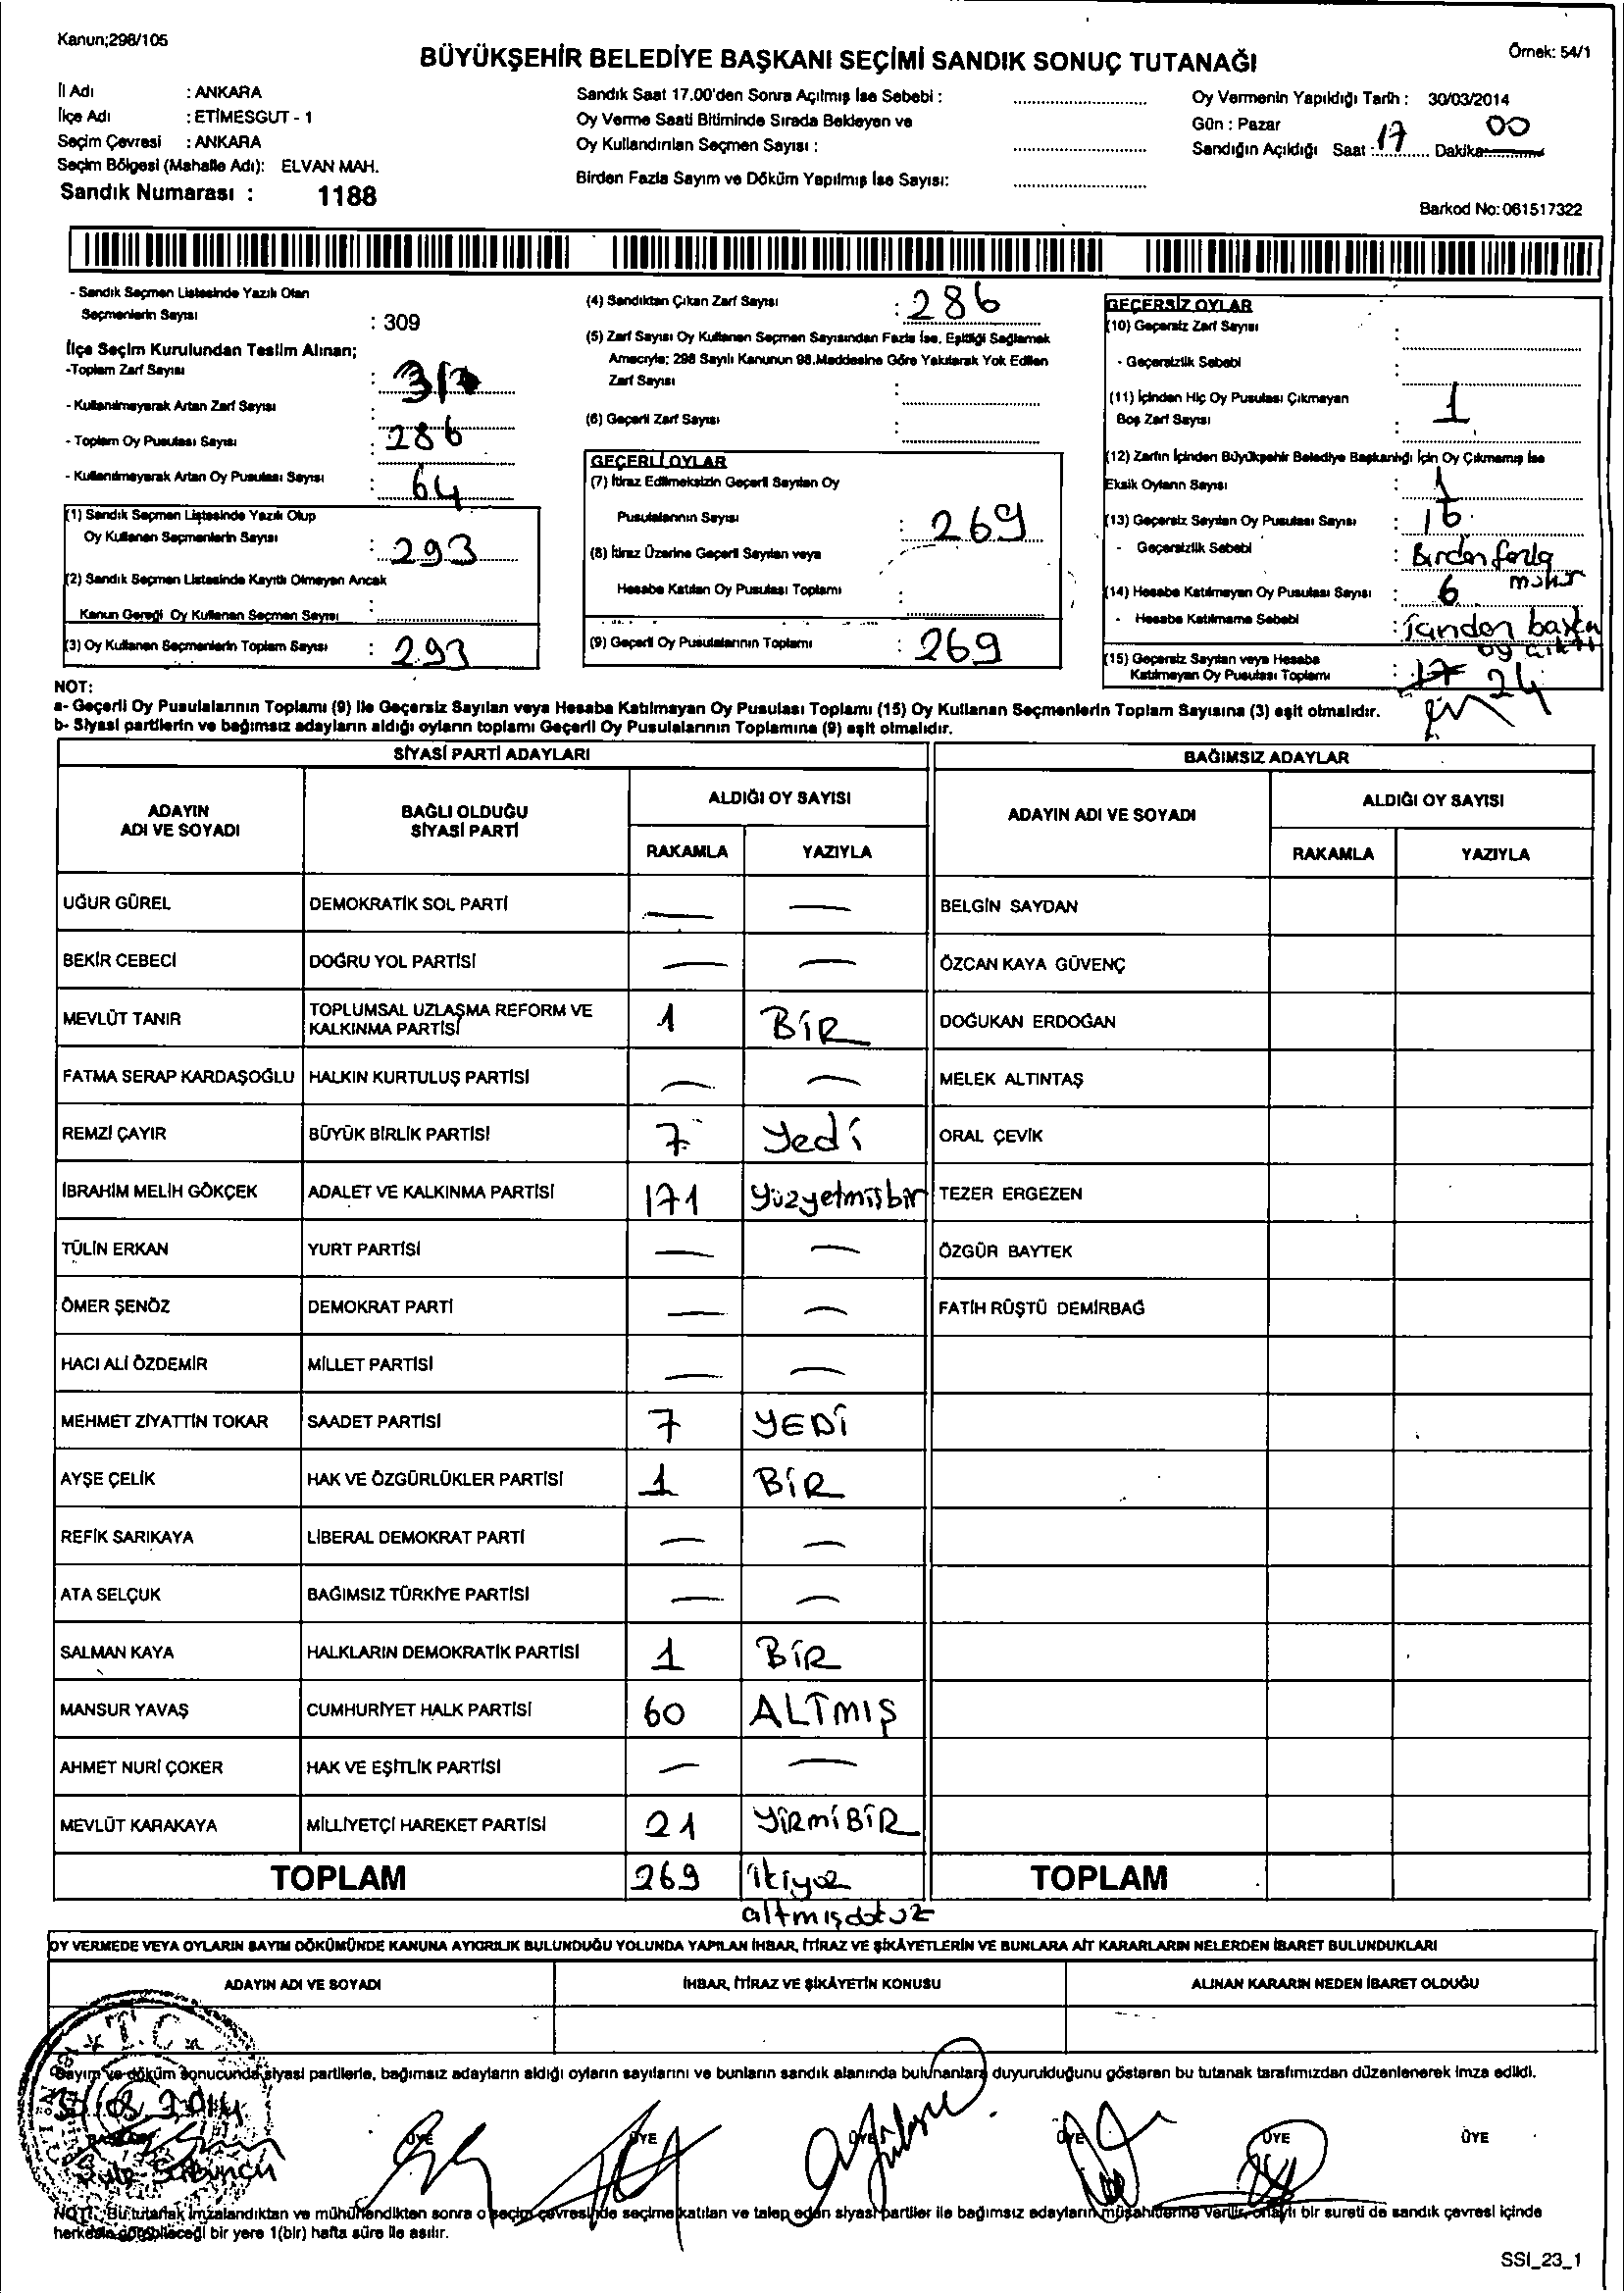 Kanun;298/105
BÜYÜKŞEHİR BELEDİYE BAŞKANI SEÇİMİ SANDIK SONUÇ TUTANAĞI
Örnek: 54/1
İl Adı : ANKARA
İlçe Adı : ETİMESGUT - 1
Seçim Çevresi : ANKARA
Seçim Bölgesi (Mahalle Adı): ELVAN MAH.
Sandık Numarası : 1188
Sandık Saat 17.00'den Sonra Açılmış İse Sebebi :
Oy Verme Saati Bitiminde Sırada Bekleyen ve
Oy Kullandırılan Seçmen Sayısı :
Birden Fazla Sayım ve Döküm Yapılmış İse Sayısı:
Oy Vermenin Yapıldığı Tarih : 30/03/2014
Gün : Pazar
Sandığın Açıldığı Saat : 17 Dakika: 00
Barkod No: 061517322
- Sandık Seçmen Listesinde Yazılı Olan
Seçmenlerin Sayısı : 309
İlçe Seçim Kurulundan Teslim Alınan;
-Toplam Zarf Sayısı :
- Kullanılmayarak Artan Zarf Sayısı :
- Toplam Oy Pusulası Sayısı : 286
- Kullanılmayarak Artan Oy Pusulası Sayısı : 64
(1) Sandık Seçmen Listesinde Yazılı Olup
Oy Kullanan Seçmenlerin Sayısı : 293
(2) Sandık Seçmen Listesinde Kayıtlı Olmayan Ancak
Kanun Gereği Oy Kullanan Seçmen Sayısı :
(3) Oy Kullanan Seçmenlerin Toplam Sayısı : 293
(4) Sandıktan Çıkan Zarf Sayısı : 286
(5) Zarf Sayısı Oy Kullanan Seçmen Sayısından Fazla İse, Eşitliği Sağlamak
Amacıyla; 298 Sayılı Kanunun 98.Maddesine Göre Yakılarak Yok Edilen
Zarf Sayısı :
(6) Geçerli Zarf Sayısı :
GEÇERLİ OYLAR
(7) İtiraz Edilmeksizin Geçerli Sayılan Oy
Pusulalarının Sayısı : 269
(8) İtiraz Üzerine Geçerli Sayılan veya
Hesaba Katılan Oy Pusulası Toplamı :
(9) Geçerli Oy Pusulalarının Toplamı : 269
GEÇERSİZ OYLAR
(10) Geçersiz Zarf Sayısı :
- Geçersizlik Sebebi :
(11) İçinden Hiç Oy Pusulası Çıkmayan
Boş Zarf Sayısı : 1
(12) Zarfın İçinden Büyükşehir Belediye Başkanlığı İçin Oy Çıkmamış İse
Eksik Oyların Sayısı : 1
(13) Geçersiz Sayılan Oy Pusulası Sayısı : 16
- Geçersizlik Sebebi : Birden fazla
mühür
(14) Hesaba Katılmayan Oy Pusulası Sayısı : 6
- Hesaba Katılmama Sebebi : içinden başka
oy çıktı
(15) Geçersiz Sayılan veya Hesaba
Katılmayan Oy Pusulası Toplamı : 17 24
NOT:
a- Geçerli Oy Pusulalarının Toplamı (9) ile Geçersiz Sayılan veya Hesaba Katılmayan Oy Pusulası Toplamı (15) Oy Kullanan Seçmenlerin Toplam Sayısına (3) eşit olmalıdır.
b- Siyasi partilerin ve bağımsız adayların aldığı oyların toplamı Geçerli Oy Pusulalarının Toplamına (9) eşit olmalıdır.
SİYASİ PARTİ ADAYLARI BAĞIMSIZ ADAYLAR
ADAYIN ADI VE SOYADI BAĞLI OLDUĞU SİYASİ PARTİ ALDIĞI OY SAYISI ADAYIN ADI VE SOYADI ALDIĞI OY SAYISI
RAKAMLA YAZIYLA RAKAMLA YAZIYLA
UĞUR GÜREL DEMOKRATİK SOL PARTİ — — BELGİN SAYDAN
BEKİR CEBECİ DOĞRU YOL PARTİSİ — — ÖZCAN KAYA GÜVENÇ
MEVLÜT TANIR TOPLUMSAL UZLAŞMA REFORM VE KALKINMA PARTİSİ 1 BİR DOĞUKAN ERDOĞAN
FATMA SERAP KARDAŞOĞLU HALKIN KURTULUŞ PARTİSİ — — MELEK ALTINTAŞ
REMZİ ÇAYIR BÜYÜK BİRLİK PARTİSİ 7 Yedi ORAL ÇEVİK
İBRAHİM MELİH GÖKÇEK ADALET VE KALKINMA PARTİSİ 171 Yüzyetmişbir TEZER ERGEZEN
TÜLİN ERKAN YURT PARTİSİ — — ÖZGÜR BAYTEK
ÖMER ŞENÖZ DEMOKRAT PARTİ — — FATİH RÜŞTÜ DEMİRBAĞ
HACI ALİ ÖZDEMİR MİLLET PARTİSİ — —
MEHMET ZİYATTİN TOKAR SAADET PARTİSİ 7 YEDİ
AYŞE ÇELİK HAK VE ÖZGÜRLÜKLER PARTİSİ 1 BİR
REFİK SARIKAYA LİBERAL DEMOKRAT PARTİ — —
ATA SELÇUK BAĞIMSIZ TÜRKİYE PARTİSİ — —
SALMAN KAYA HALKLARIN DEMOKRATİK PARTİSİ 1 BİR
MANSUR YAVAŞ CUMHURİYET HALK PARTİSİ 60 ALTMIŞ
AHMET NURİ ÇOKER HAK VE EŞİTLİK PARTİSİ — —
MEVLÜT KARAKAYA MİLLİYETÇİ HAREKET PARTİSİ 21 YİRMİBİR
TOPLAM 269 ikiyüz TOPLAM
altmışdokuz
OY VERMEDE VEYA OYLARIN SAYIM DÖKÜMÜNDE KANUNA AYKIRILIK BULUNDUĞU YOLUNDA YAPILAN İHBAR, İTİRAZ VE ŞİKÂYETLERİN VE BUNLARA AİT KARARLARIN NELERDEN İBARET BULUNDUKLARI
ADAYIN ADI VE SOYADI İHBAR, İTİRAZ VE ŞİKÂYETİN KONUSU ALINAN KARARIN NEDEN İBARET OLDUĞU
T.C.
Sayım ve döküm sonucunda siyasi partilerle, bağımsız adayların aldığı oyların sayılarını ve bunların sandık alanında bulunanlara duyurulduğunu gösteren bu tutanak tarafımızdan düzenlenerek imza edildi.
BAŞKAN ÜYE ÜYE ÜYE ÜYE ÜYE ÜYE
NOT: Bu tutanak imzalandıktan ve mühürlendikten sonra o seçim çevresinde seçime katılan ve talep eden siyasi partiler ile bağımsız adayların müşahitlerine verilir, onaylı bir sureti de sandık çevresi içinde
herkesin görebileceği bir yere 1(bir) hafta süre ile asılır.
SSI_23_1